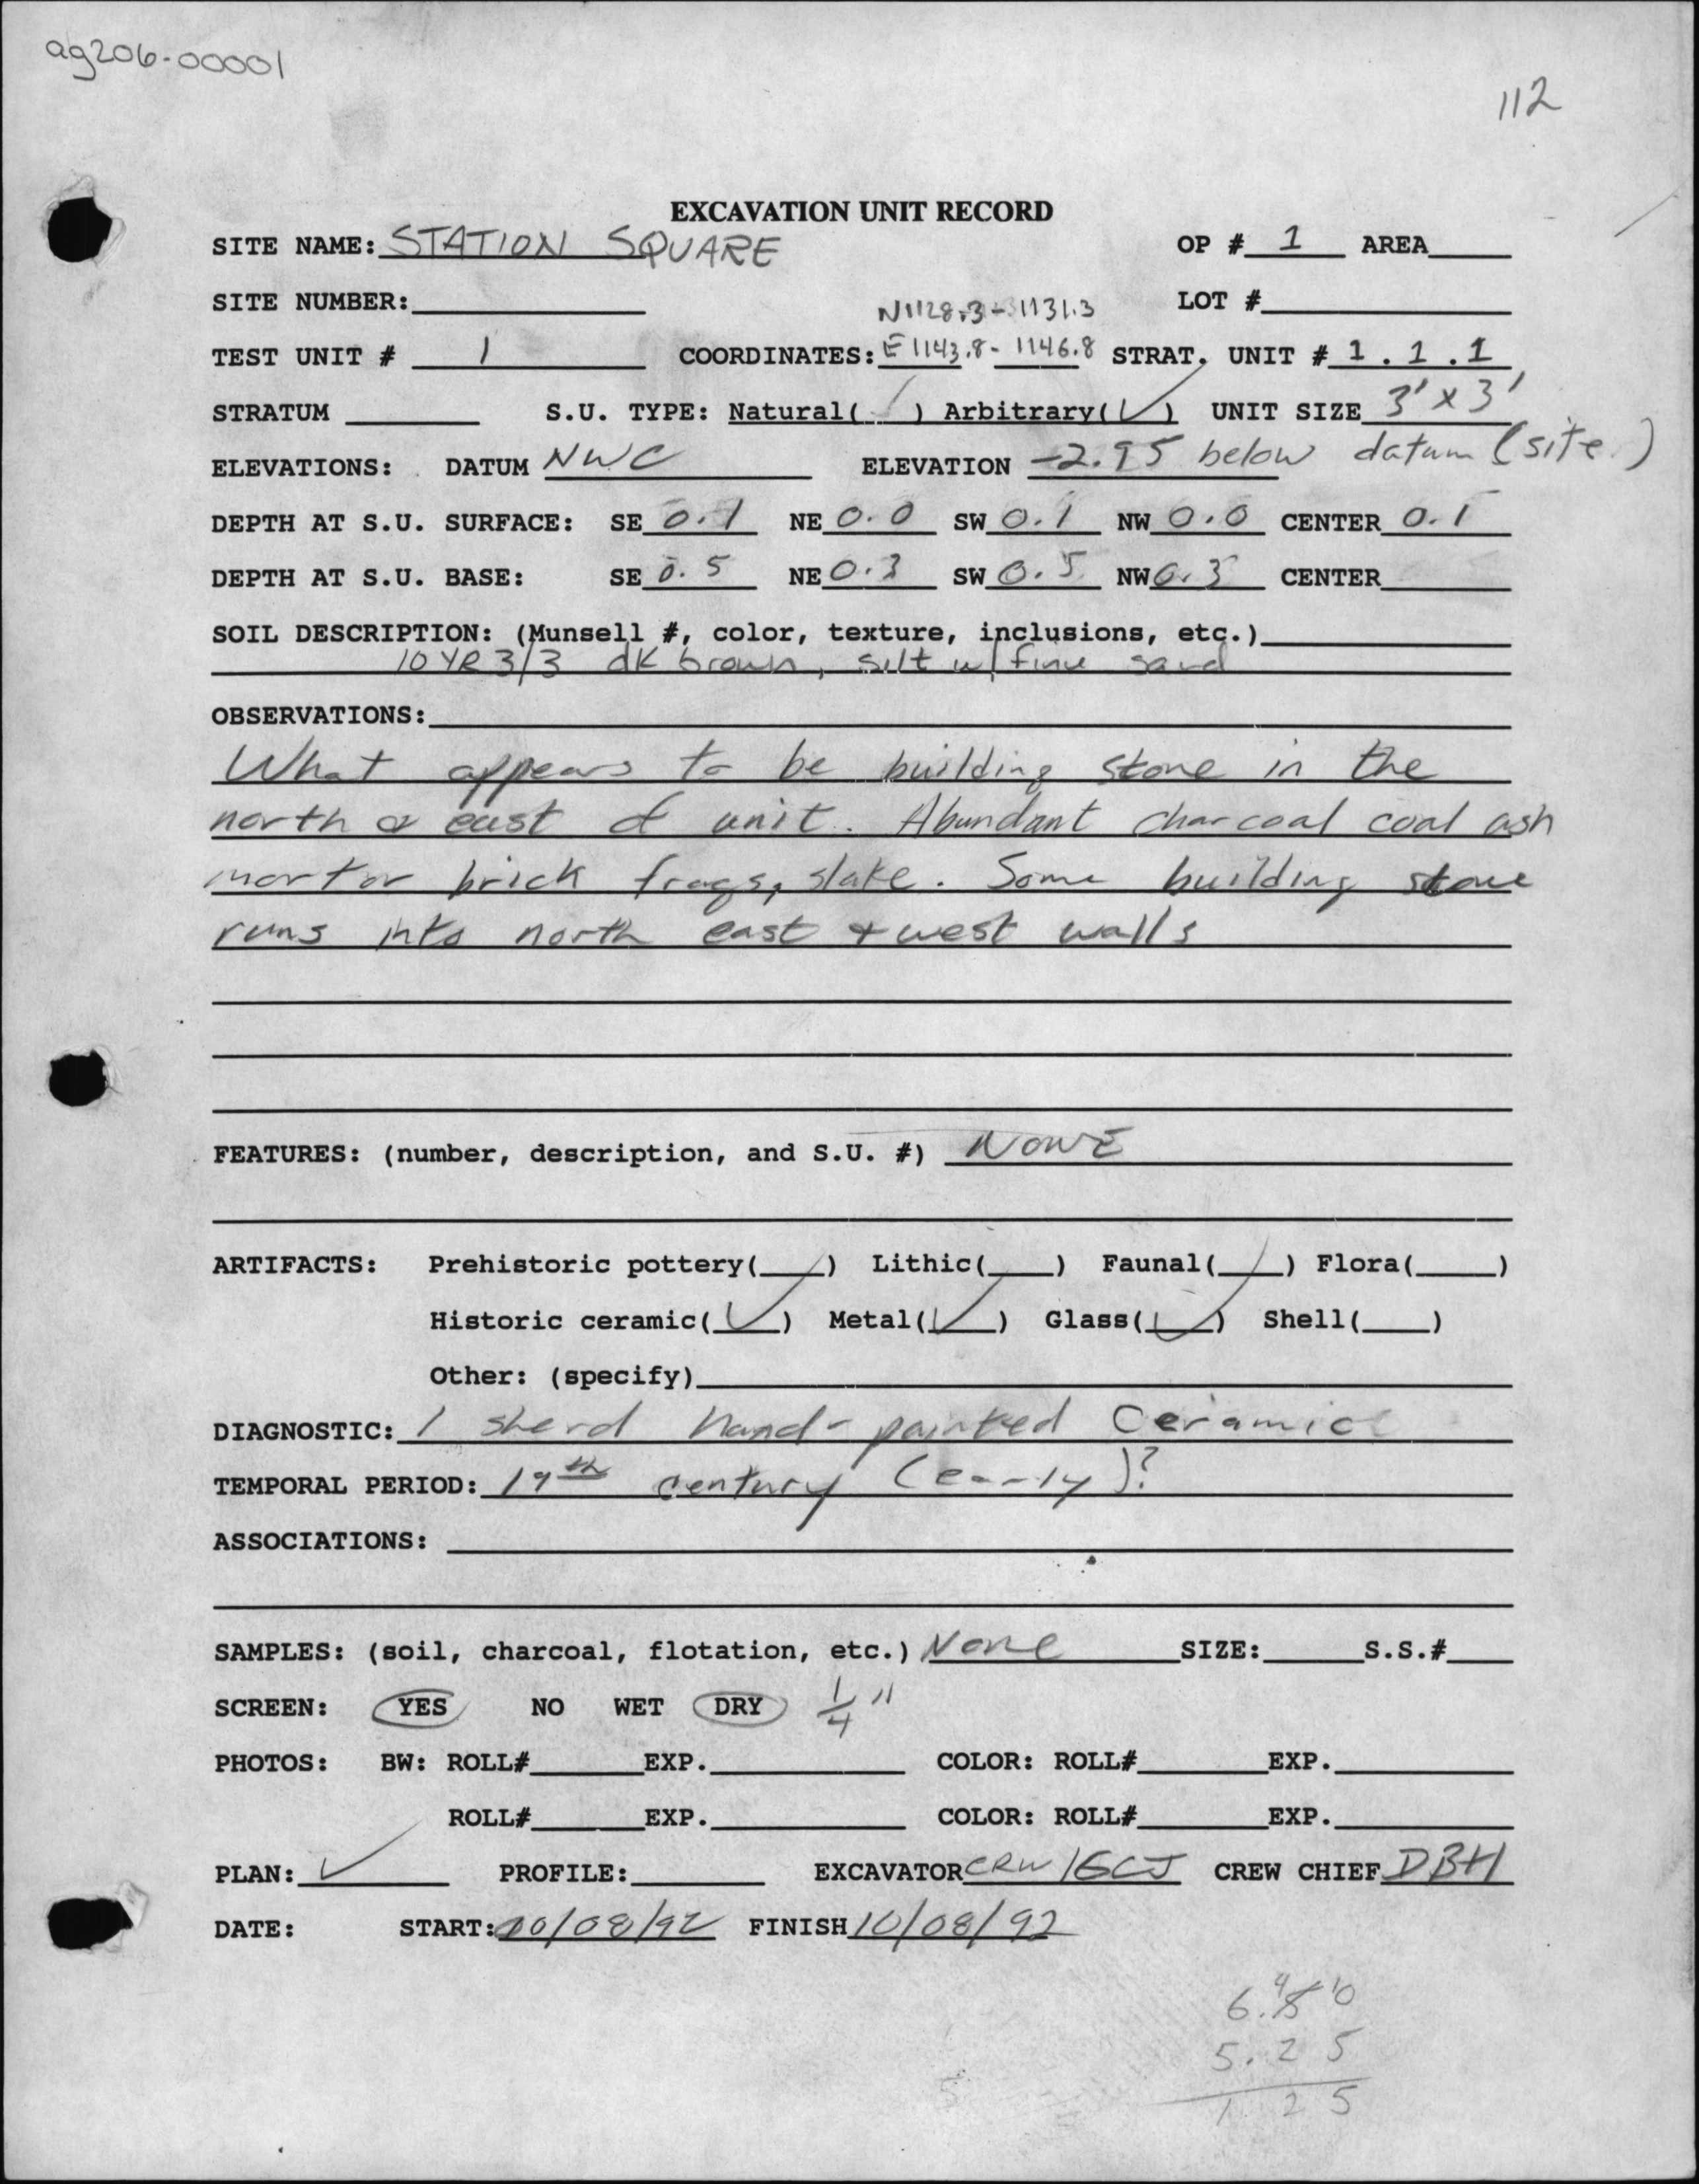 ag206-00001
112
EXCAVATION UNIT RECORD
SITE NAME: STATION SQUARE OP # 1 AREA
SITE NUMBER: N1128.3-1131.3 LOT #
TEST UNIT # 1 COORDINATES: E1143.8-1146.8 STRAT. UNIT # 1.1.1
STRATUM S.U. TYPE: Natural( ) Arbitrary(✓) UNIT SIZE 3'x3'
ELEVATIONS: DATUM NWC ELEVATION -2.95 below datum (site)
DEPTH AT S.U. SURFACE: SE 0.1 NE 0.0 SW 0.1 NW 0.0 CENTER 0.1
DEPTH AT S.U. BASE: SE 0.5 NE 0.3 SW 0.5 NW 0.3 CENTER
SOIL DESCRIPTION: (Munsell #, color, texture, inclusions, etc.)
10YR3/3 dk brown, silt w/ fine sand
OBSERVATIONS:
What appears to be building stone in the
north & east of unit. Abundant charcoal coal ash
mortar brick frags, slate. Some building stone
runs into north east + west walls
FEATURES: (number, description, and S.U. #) NONE
ARTIFACTS: Prehistoric pottery( ) Lithic( ) Faunal( ) Flora( )
Historic ceramic(✓) Metal(✓) Glass(✓) Shell( )
Other: (specify)
DIAGNOSTIC: 1 sherd hand-painted ceramic
TEMPORAL PERIOD: 19th century (early)?
ASSOCIATIONS:
SAMPLES: (soil, charcoal, flotation, etc.) None SIZE: S.S.#
SCREEN: YES NO WET DRY 1/4"
PHOTOS: BW: ROLL# EXP. COLOR: ROLL# EXP.
ROLL# EXP. COLOR: ROLL# EXP.
PLAN: ✓ PROFILE: EXCAVATOR CRW/GCJ CREW CHIEF DBH
DATE: START: 10/08/92 FINISH 10/08/92
6.50
5.25
1.25